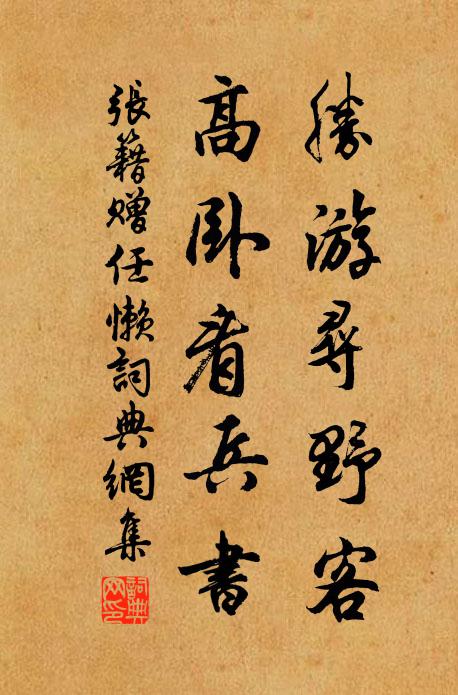 勝游尋野客
高卧看兵書
張籍贈任懶詞典網集
詞典網印